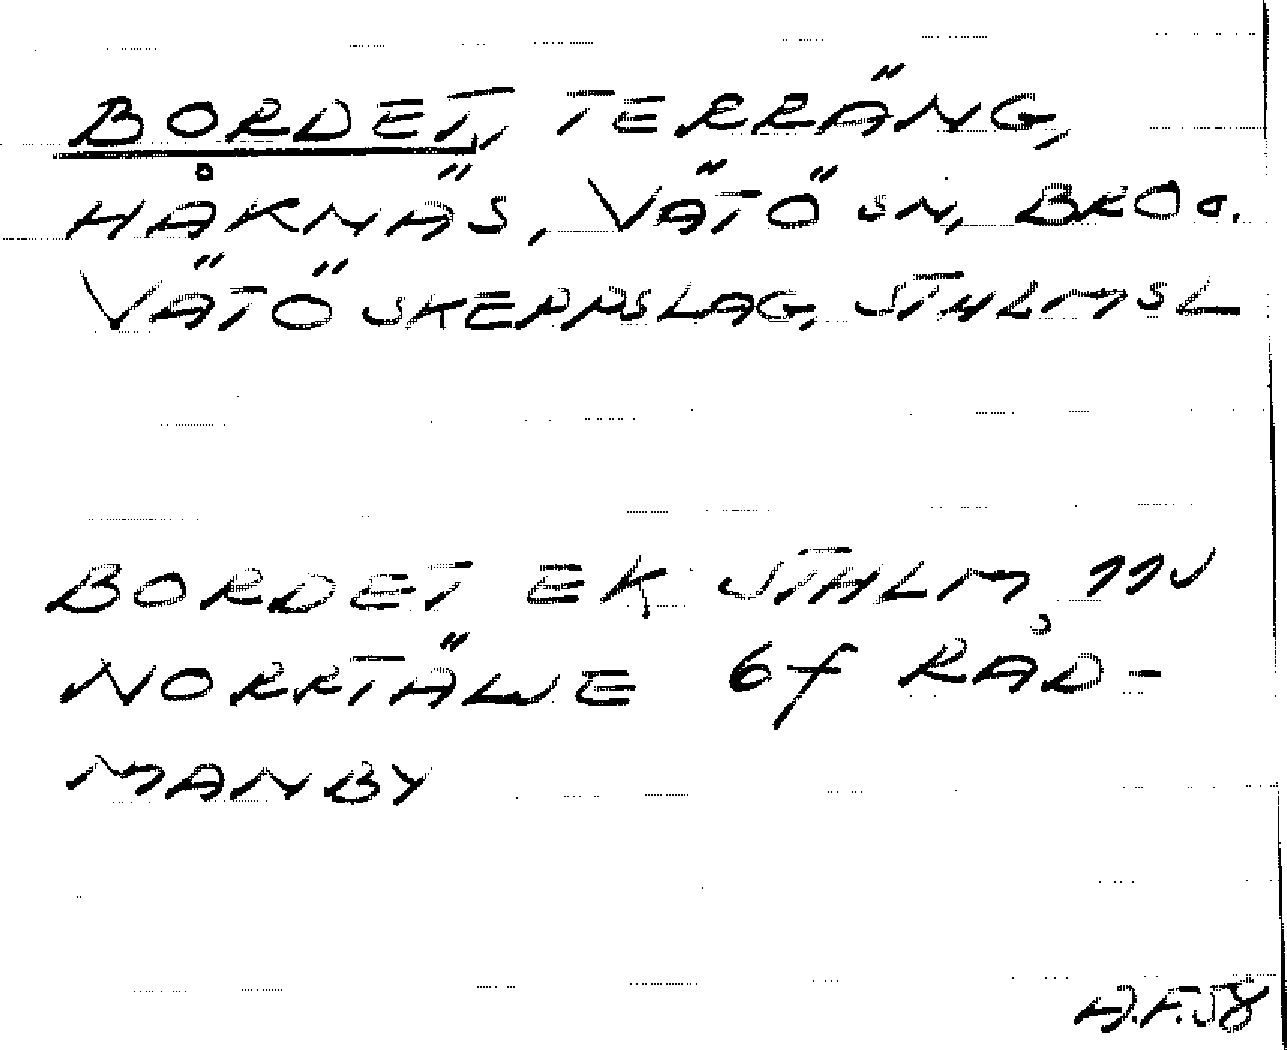 BORDET, TERRÄNG,
HÅKNÄS, VÄTÖ SN, BRO O.
VÄTÖ SKEPPSLAG, STHLMS L
BORDET EK STHLM 11J
NORRTÄLJE 6f RÅD-
MANBY
A.F. 58